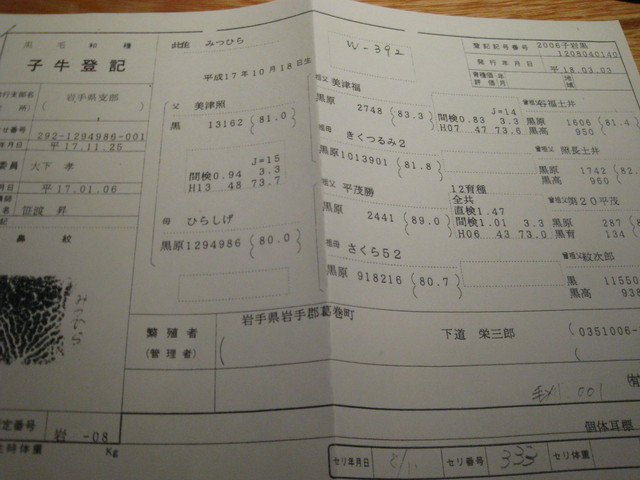 黒毛和種
子牛登記
此佳 みつひら
平成17年10月18日生
W-392
登記記号番号 2006子岩黒
1208040140
発行年月日 平18.03.03
岩手県支部
292-1294986-001
平 17.11.25
大下 孝
平 17.01.06
笹渡 昇
鼻 紋
みつひら
父 美津照
黒 13162 (81.0)
J=15
間検0.94 3.3
H13 48 73.7
母 ひらしげ
黒原1294986 (80.0)
祖父 美津福
黒原 2748 (83.3)
J=14
間検0.83 3.3
H07 47 73.6
祖母 きくつるみ2
黒原1013901 (81.8)
祖父 平茂勝
黒原 2441 (89.0)
12育種
全共
直検1.47
間検1.01 3.3
H06 43 73.0
祖母 さくら52
黒原 918216 (80.7)
曾祖父 谷福土井
黒原 1606 (81.4
黒高 950
曾祖父 照長土井
黒原 1742 (82.
黒高 960
曾祖父 第20平茂
黒原 287
黒育 134
曾祖父 紋次郎
黒 11550
黒高 938
繁殖者
(管理者)
岩手県岩手郡葛巻町
下道 栄三郎
(0351006-
001
個体耳標
定番号 岩 -08
時体重 Kg
セリ年月日
セリ番号 333
セリ体重